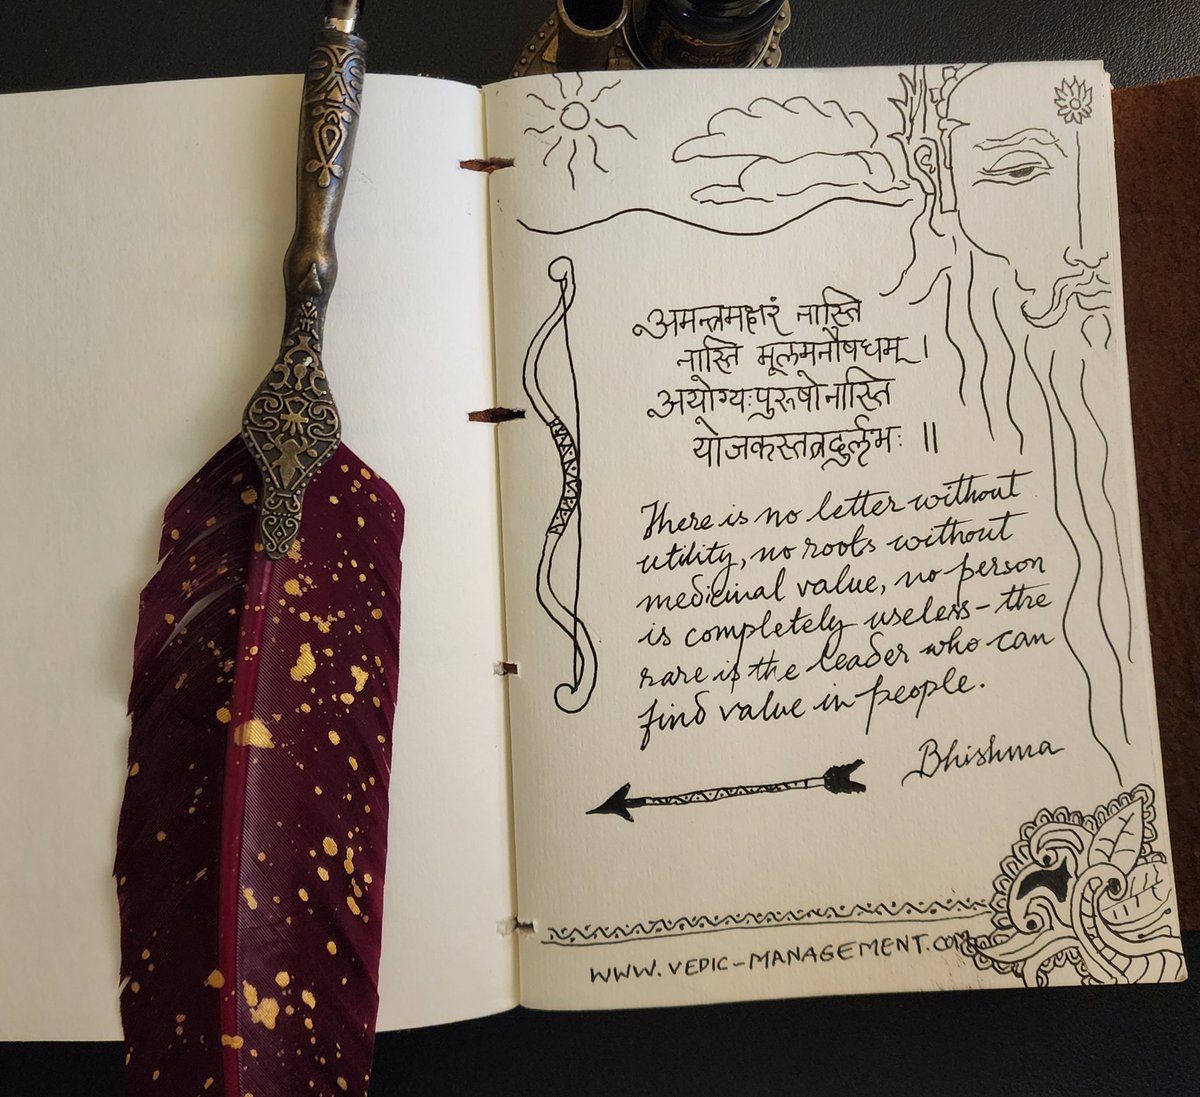 अमन्त्रमक्षरं नास्ति
नास्ति मूलमनौषधम् ।
अयोग्यःपुरूषोनास्ति
योजकस्तत्रदुर्लभः ॥
There is no letter without
utility, no roots without
medicinal value, no person
is completely useless - the
rare is the leader who can
find value in people.
Bhishma
WWW.VEDIC-MANAGEMENT.COM